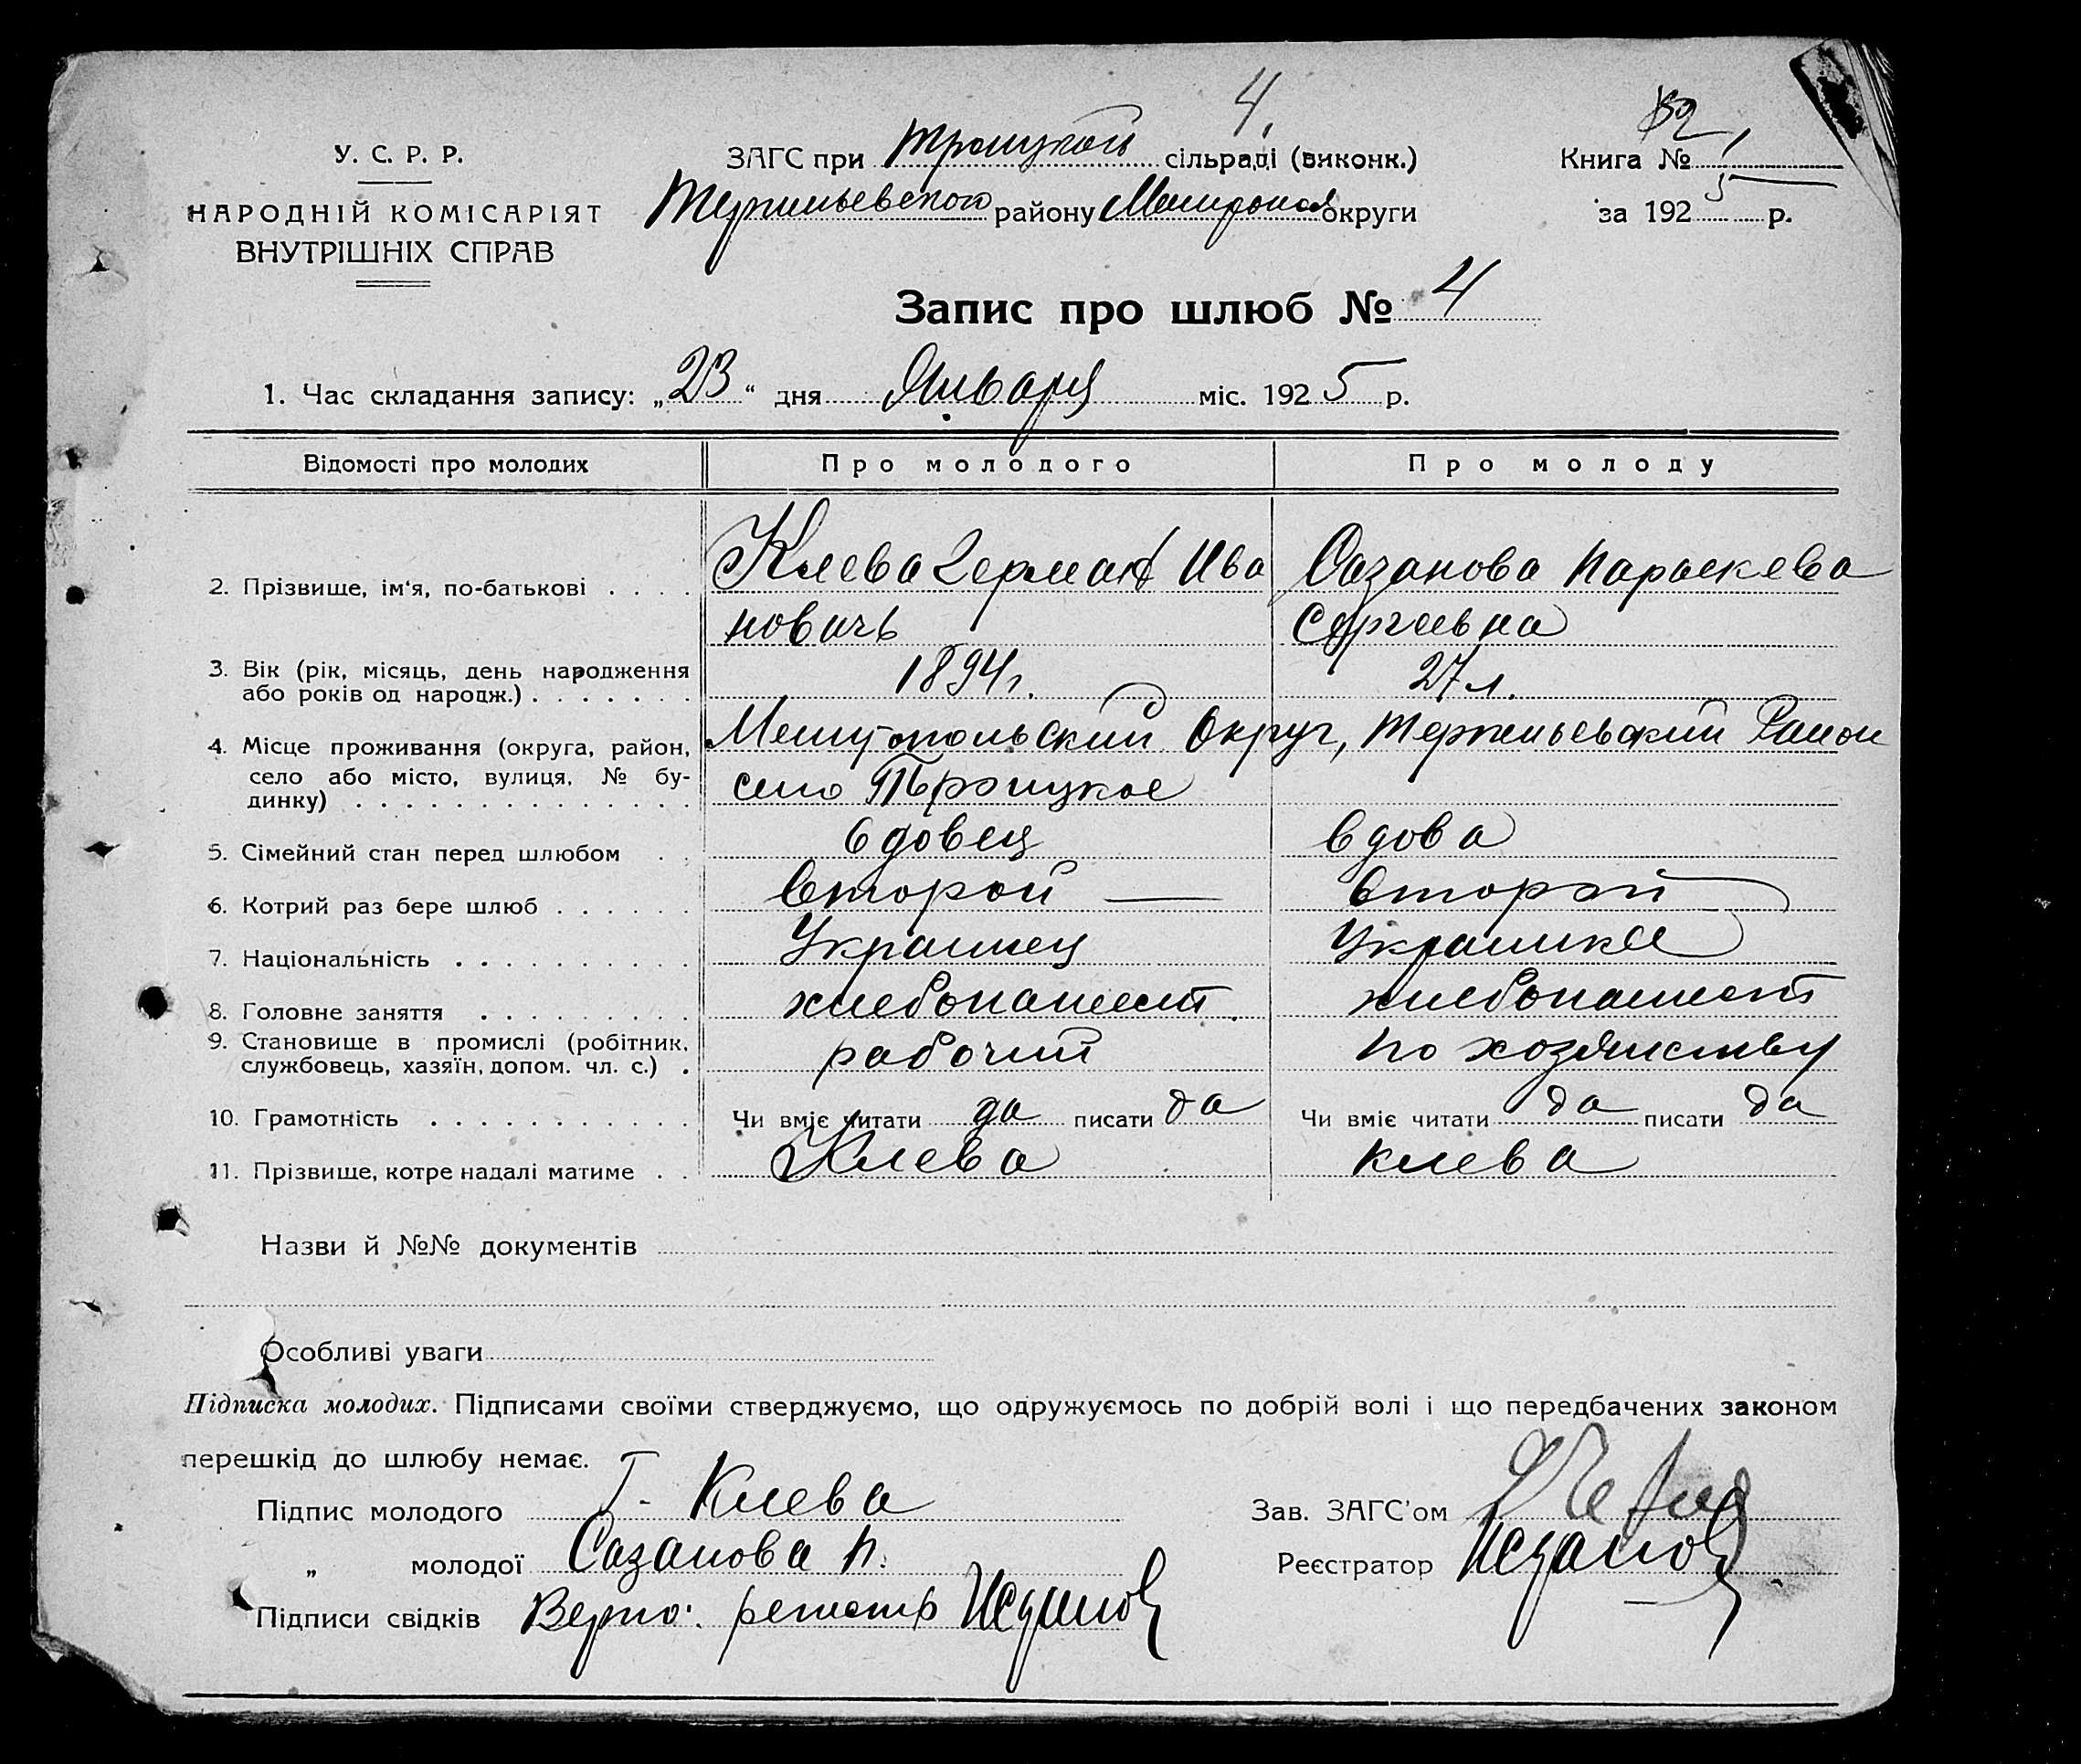 4.
У. С. Р. Р.
НАРОДНІЙ КОМІСАРІЯТ
ВНУТРІШНІХ СПРАВ
ЗАГС при Троицком сільраді (виконк.)
Терпеньевского района Мелитопол округи
Книга № 1
за 1925 р.
Запис про шлюб № 4
1. Час складання запису: „23“ дня Января міс. 1925 р.
Відомості про молодих Про молодого Про молоду
2. Прізвище, ім‘я, по-батькові . . . . Клева Герман Ива Сазанова Параскева
новичь Сергеевна
3. Вік (рік, місяць, день народження
або років од народж.) . . . . . . . 1894 г. 27 л.
4. Місце проживання (округа, район, Мелитопольский Округ, Терпеньевский Район
село або місто, вулиця, № бу-
динку) . . . . . . . . . . . . . . село Троицкое
5. Сімейний стан перед шлюбом . . вдовец вдова
6. Котрий раз бере шлюб . . . . . . Второй — второй
7. Національність . . . . . . . . . . Украинец Украинка
8. Головне заняття . . . . . . . . . хлебопашест. хлебопашест
9. Становище в промислі (робітник,
службовець, хазяїн, допом. чл. с.) . рабочий по хозяиству
10. Грамотність . . . . . . . . . . . Чи вміє читати да писати да Чи вміє читати да писати да
11. Прізвище, котре надалі матиме . . Клева Клева
Назви й №№ документів
Особливі уваги
Підписка молодих. Підписами своїми стверджуємо, що одружуємось по добрій волі і що передбачених законом
перешкід до шлюбу немає.
Підпис молодого Г. Клева Зав. ЗАГС’ом
„ молодої Сазанова П. Реєстратор
Підписи свідків Верно: